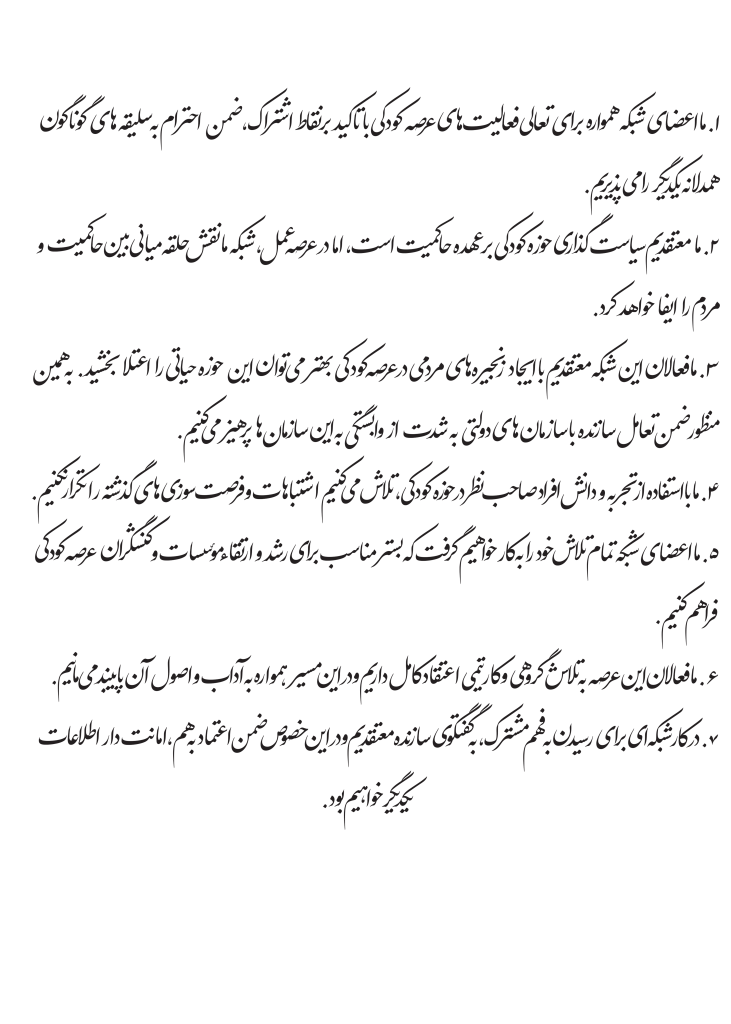 ۱. ما اعضای شبکه همواره برای تعالی فعالیت‌های عرصه کودکی با تاکید بر نقاط اشتراک، ضمن احترام به سلیقه های گوناگون
همدلانه یکدیگر را می پذیریم.
۲. ما معتقدیم سیاست گذاری حوزه کودکی بر عهده حاکمیت است، اما در عرصه عمل، شبکه ما نقش حلقه میانی بین حاکمیت و
مردم را ایفا خواهد کرد.
۳. ما فعالان این شبکه معتقدیم با ایجاد زنجیره های مردمی در عرصه کودکی بهتر می توان این حوزه حیاتی را اعتلا بخشید. به همین
منظور ضمن تعامل سازنده با سازمان های دولتی به شدت از وابستگی به این سازمان ها پرهیز می کنیم.
۴. ما با استفاده از تجربه و دانش افراد صاحب نظر در حوزه کودکی، تلاش می کنیم اشتباهات و فرصت سوزی های گذشته را تکرار نکنیم.
۵. ما اعضای شبکه تمام تلاش خود را به کار خواهیم گرفت که بستر مناسب برای رشد و ارتقاء مؤسسات و کنشگران عرصه کودکی
فراهم کنیم.
۶. ما فعالان این عرصه به تلاش گروهی و کار تیمی اعتقاد کامل داریم و در این مسیر همواره به آداب و اصول آن پایبند می مانیم.
۷. در کار شبکه ای برای رسیدن به فهم مشترک، به گفتگوی سازنده معتقدیم و در این خصوص ضمن اعتماد به هم، امانت دار اطلاعات
یکدیگر خواهیم بود.